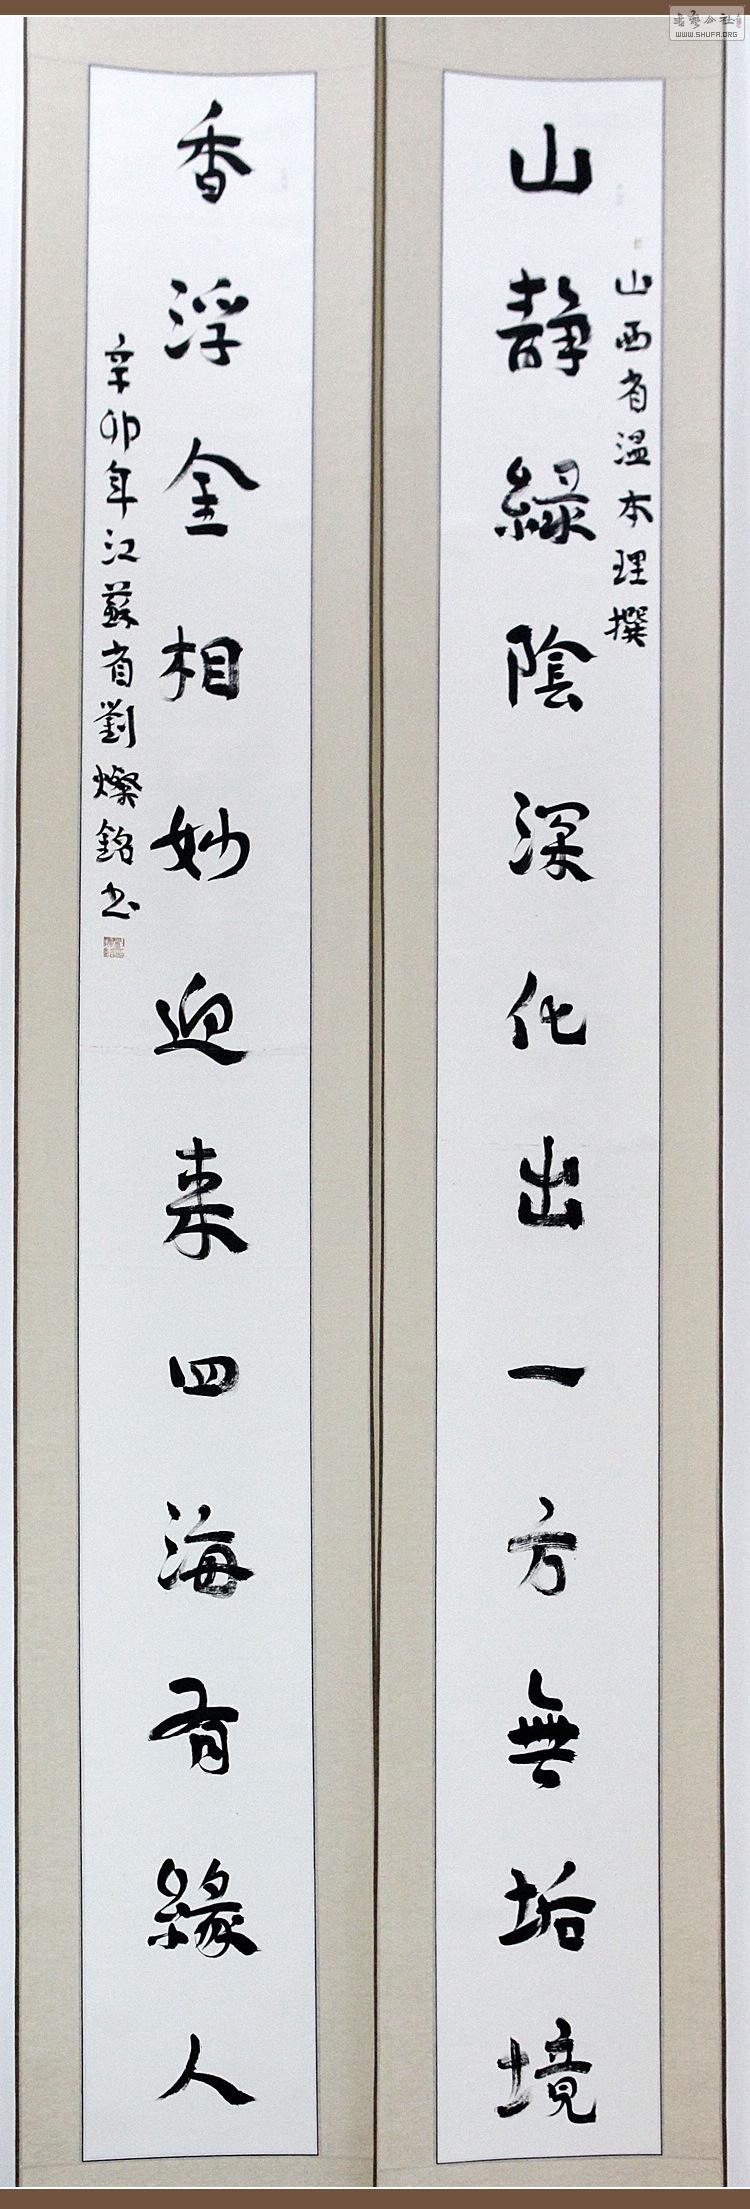 山靜綠陰深化出一方無垢境
山西省溫本理撰
香浮金相妙迎来四海有緣人
辛卯年江蘇省劉燦銘书
WWW.SHUFA.ORG